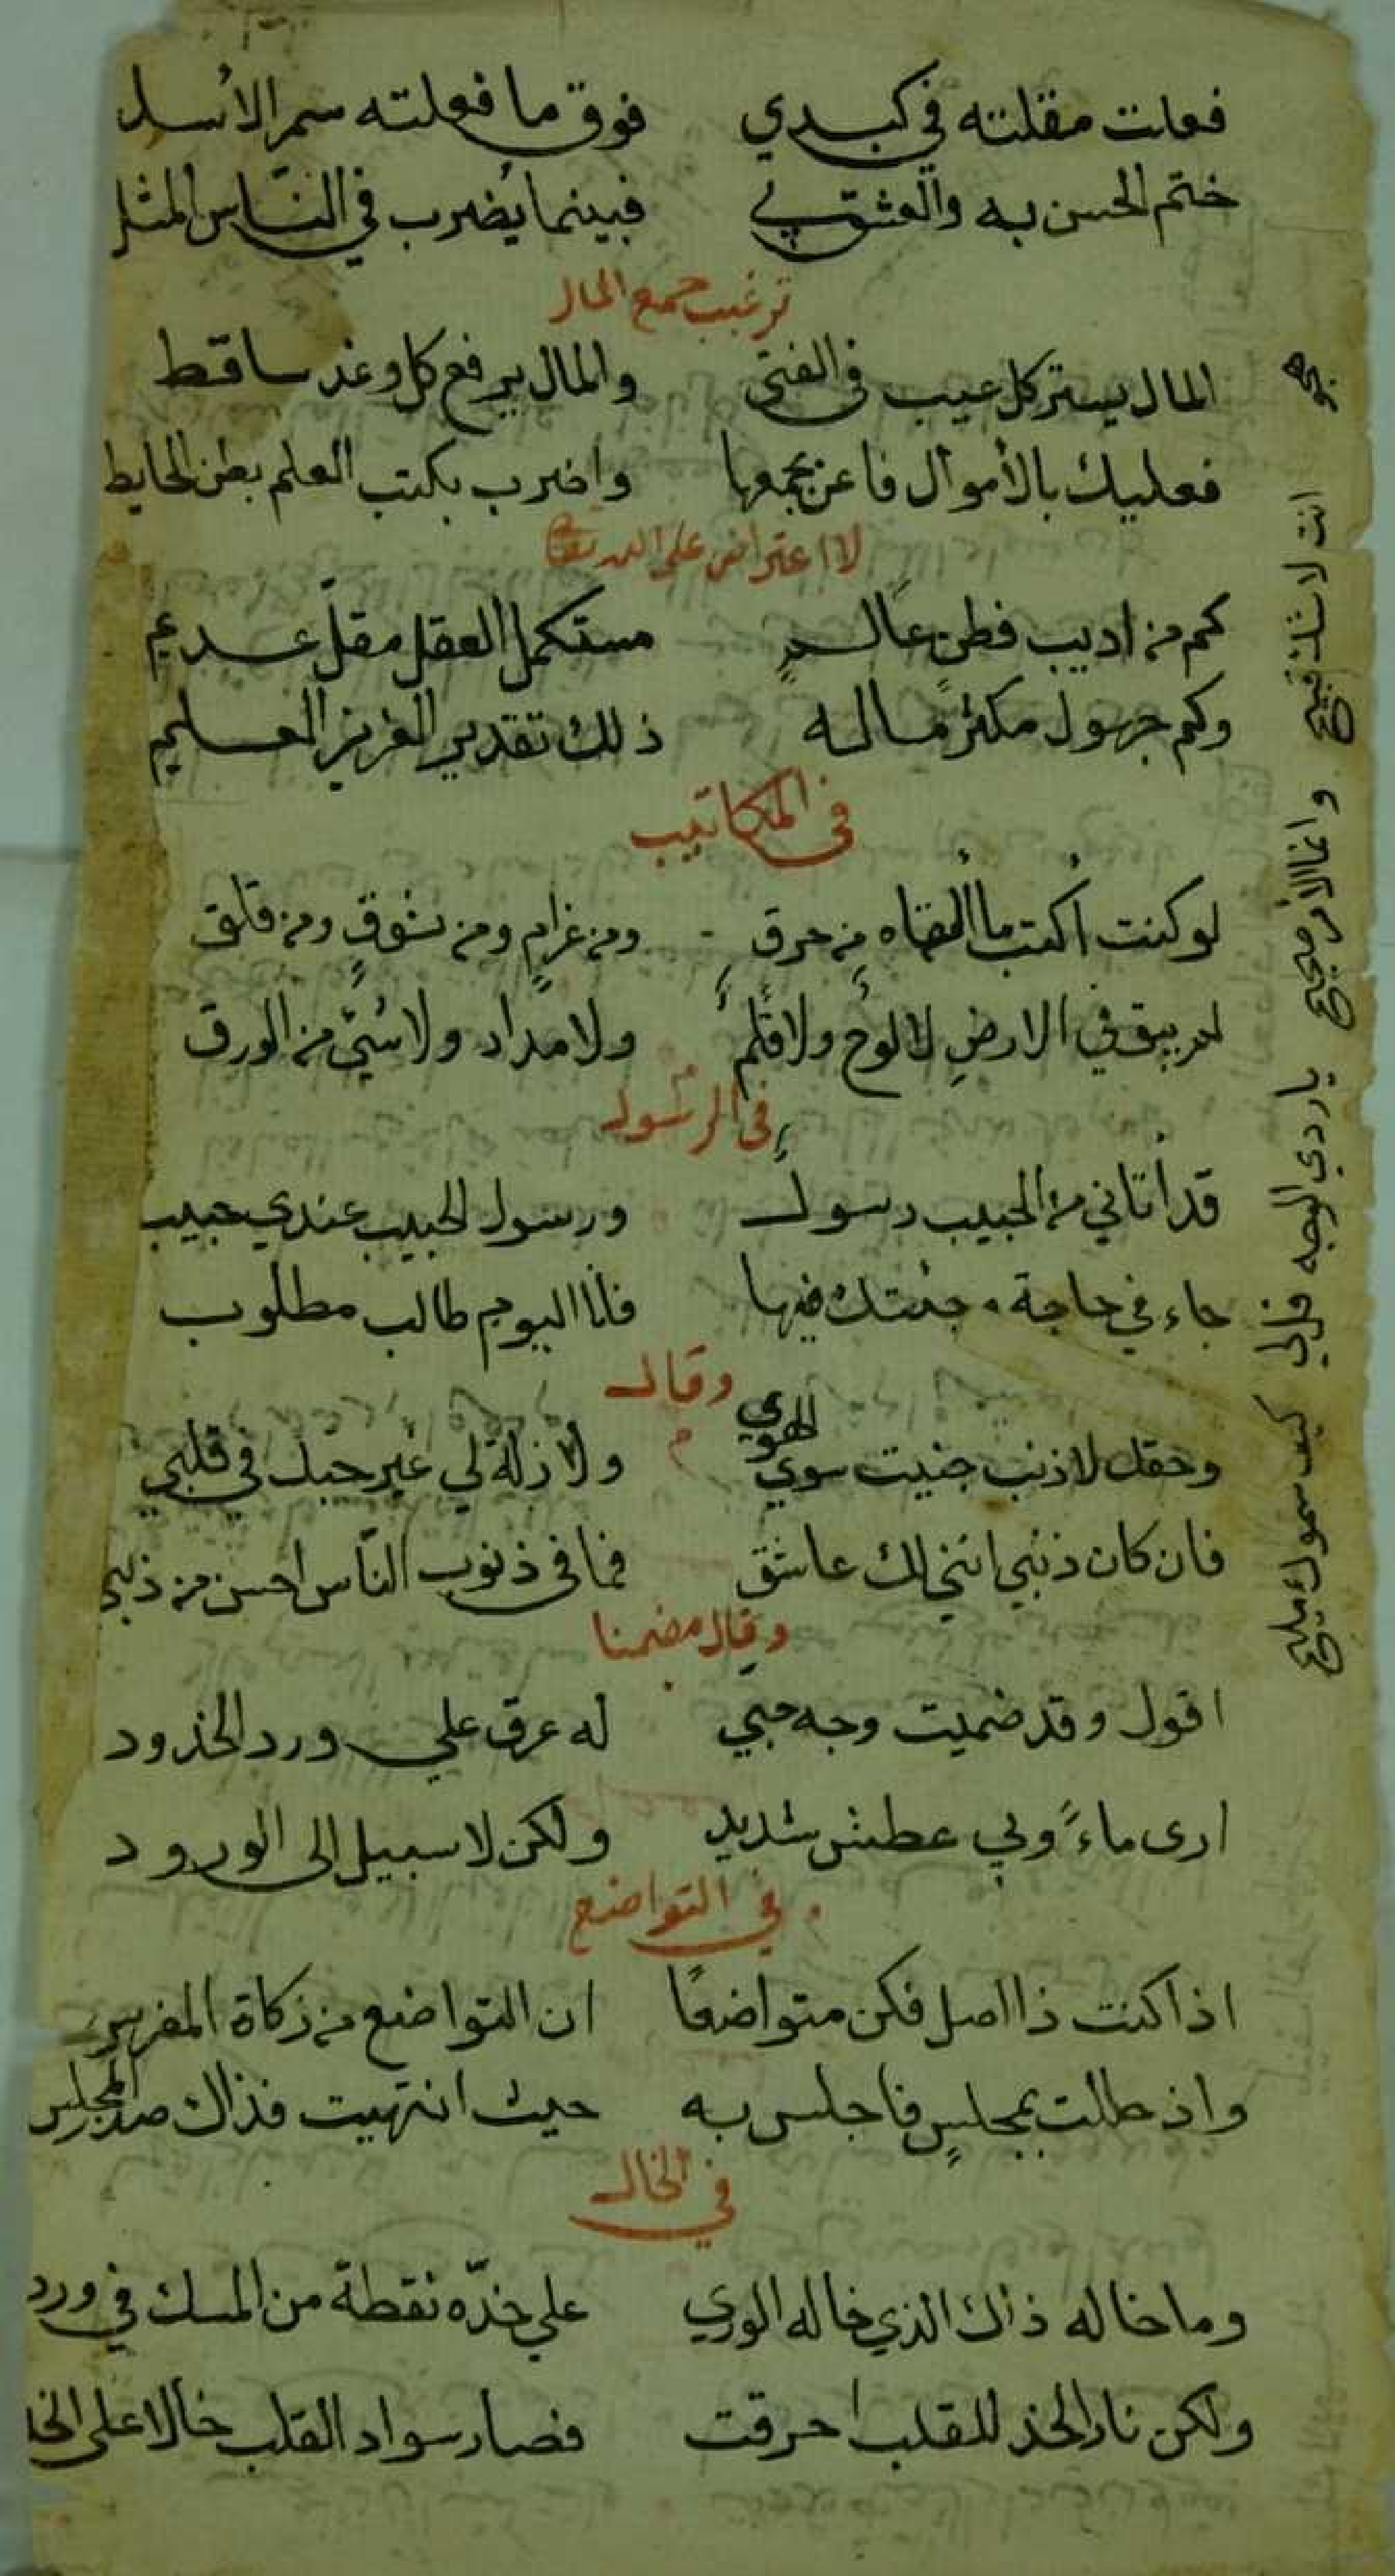 فعلت مقلته في كبدي فوق ما فعلته سمر الأسل
ختم الحسن به والعشق بي فبينما يضرب في النّاس المثل
ترغيب جمع المال
المال يستر كل عيب في الفتى والمال يرفع كل وغد ساقط
فعليك بالأموال فاعن بجمعها واضرب بكتب العلم بطن الحايط
لا اعتراض على الله تعالى
كم من اديب فطن عالمٍ مستكمل العقل مقلّ عديم
وكم جهول مكثر ماله ذلك تقدير العزيز العليم
في المكاتيب
لو كنت أكتب ما ألقاه من حرق ومن غرامٍ ومن شوقٍ ومن قلق
لم يبق في الارضِ لا لوحٌ ولا قلمٌ ولا مداد ولا شيٌ من الورق
في الرسول
قد أتاني من الحبيب رسول ورسول الحبيب عندي حبيب
جاء في حاجة جئتك فيها فانا اليوم طالب مطلوب
وقال
وحقك لا ذنب جنيت سوي الهوي ولا زلة لي غير حبك في قلبي
فان كان ذنبي انني لك عاشق فما في ذنوب النّاس احسن من ذنبي
وقال مضمنا
اقول وقد ضميت وجه حبي له عرق علي ورد الخذود
ارى ماءً وبي عطش شديد ولكن لا سبيل الى الورود
في التواضع
اذا كنت ذا اصل فكن متواضعًا ان التواضع من زكاة المغرس
واذ حللت بمجلسٍ فاجلس به حيث انتهيت فذاك صدر المجلس
في الخال
وما خاله ذاك الذي خاله الوري علي خدّه نقطة من المسك في ورد
ولكن نار الخذ للقلب احرقت فصار سواد القلب خالا على الخد
انت لا شك قبيح وانما الأمر صحيح يا ردي الوجه قل لي كيف سموك مليح